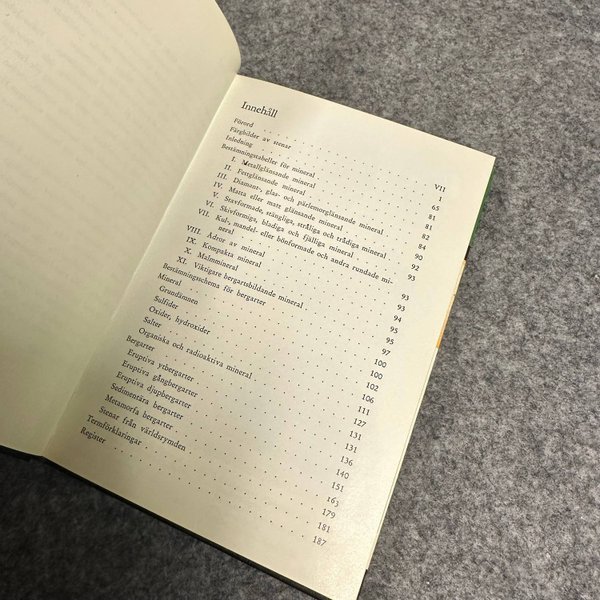 Innehåll
Förord . . . VII
Färgbilder av stenar . . . 1
Inledning . . . 65
Bestämningstabeller för mineral . . . 81
I. Metallglänsande mineral . . . 81
II. Fettglänsande mineral . . . 82
III. Diamant-, glas- och pärlemorglänsande mineral . . . 84
IV. Matta eller matt glänsande mineral . . . 90
V. Stavformade, stängliga, stråliga och trådiga mineral . . . 92
VI. Skivformiga, bladiga och fjälliga mineral . . . 93
VII. Kul-, mandel- eller bönformade och andra rundade mi-
neral . . . 93
VIII. Ådror av mineral . . . 93
IX. Kompakta mineral . . . 94
X. Malmmineral . . . 95
XI. Viktigare bergartsbildande mineral . . . 95
Bestämningsschema för bergarter . . . 97
Mineral . . . 100
Grundämnen . . . 100
Sulfider . . . 102
Oxider, hydroxider . . . 106
Salter . . . 111
Organiska och radioaktiva mineral . . . 127
Bergarter . . . 131
Eruptiva ytbergarter . . . 131
Eruptiva gångbergarter . . . 136
Eruptiva djupbergarter . . . 140
Sedimentära bergarter . . . 151
Metamorfa bergarter . . . 163
Stenar från världsrymden . . . 179
Termförklaringar . . . 181
Register . . . 187